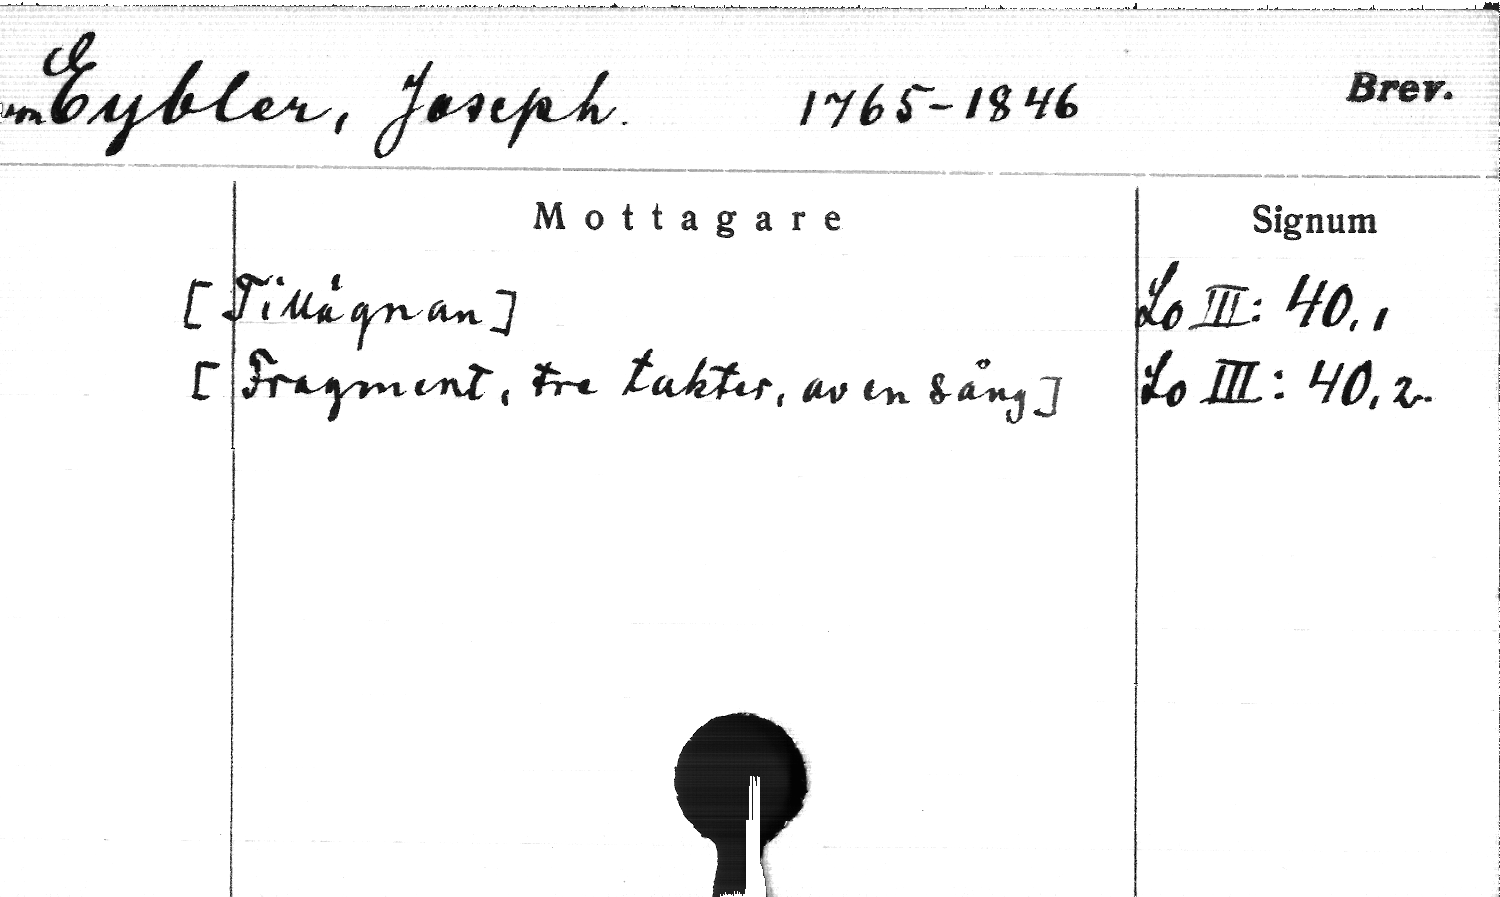 von Eybler, Joseph. 1765-1846 Brev.
Mottagare Signum
[Tillägnan] Lo III: 40,1
[Fragment, tre takter, av en sång] Lo III: 40,2.